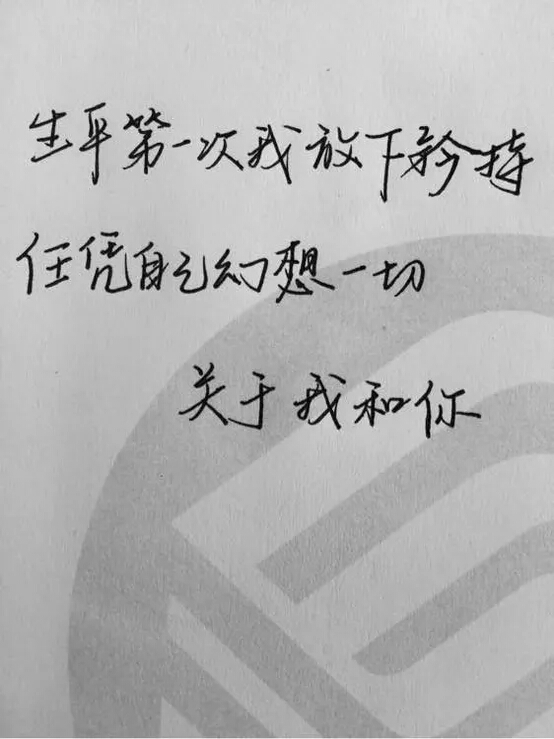 生平第一次我放下矜持
任凭自己幻想一切
关于我和你